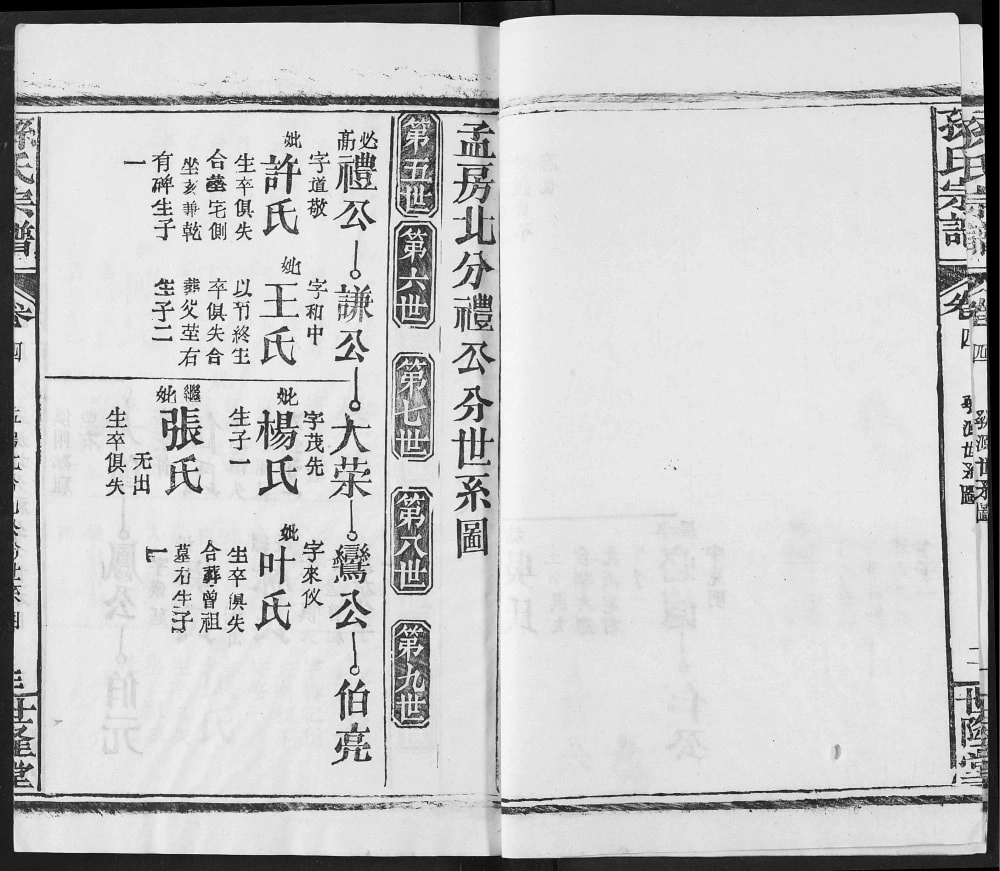 孫氏宗譜
卷四
發源世系圖
二
世隆堂
孟房北分禮公分世系圖
第五世
第六世
第七世
第八世
第九世
必高
禮公
字道敬
妣許氏
生卒俱失
合墓宅側
坐亥兼乾
有碑生子
一
謙公
字和中
妣王氏
以节終生
卒俱失合
葬父茔右
生子二
大荣
字茂先
妣楊氏
生子一
繼妣張氏
无出
生卒俱失
鸞公
字來仪
妣叶氏
生卒俱失
合葬曾祖
墓右生子
伯亮
孫氏宗譜
卷四
世隆堂